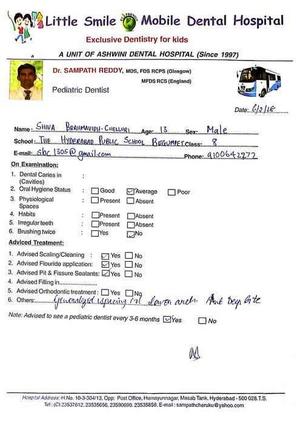 Little Smile Mobile Dental Hospital
Exclusive Dentistry for kids
A UNIT OF ASHWINI DENTAL HOSPITAL (Since 1997)
Dr. SAMPATH REDDY, MDS, FDS RCPS (Glasgow)
MFDS RCS (England)
Pediatric Dentist
Date:
Name: Age: 13 Sex: Male
School: The HYDERABAD PUBLIC SCHOOL BEGUMPET Class: 8
E-mail: sbc1305@gmail.com Phone: 9100642277
On Examination:
1. Dental Caries in :
(Cavities)
2. Oral Hygiene Status : Good Average Poor
3. Physiological : Present Absent
Spaces
4. Habits : Present Absent
5. Irregular teeth : Present Absent
6. Brushing twice : Yes No
Adviced Treatment:
1. Advised Scaling/Cleaning : Yes No
2. Advised Flouride application: Yes No
3. Advised Pit & Fissure Sealants: Yes No
4. Advised Filling in
5. Advised Orthodontic treatment : Yes No
6. Others: Generalized spacing in lower arch And Deep bite
Note: Advised to see a pediatric dentist every 3-6 months Yes No
Hospital Address: H.No. 10-3-304/13, Opp: Post Office, Humayunnagar, Masab Tank, Hyderabad - 500 028 T.S.
Tel: (C) 23537612, 23535656, 23590690, 23535858, E.mail : sampathcheruku@yahoo.com